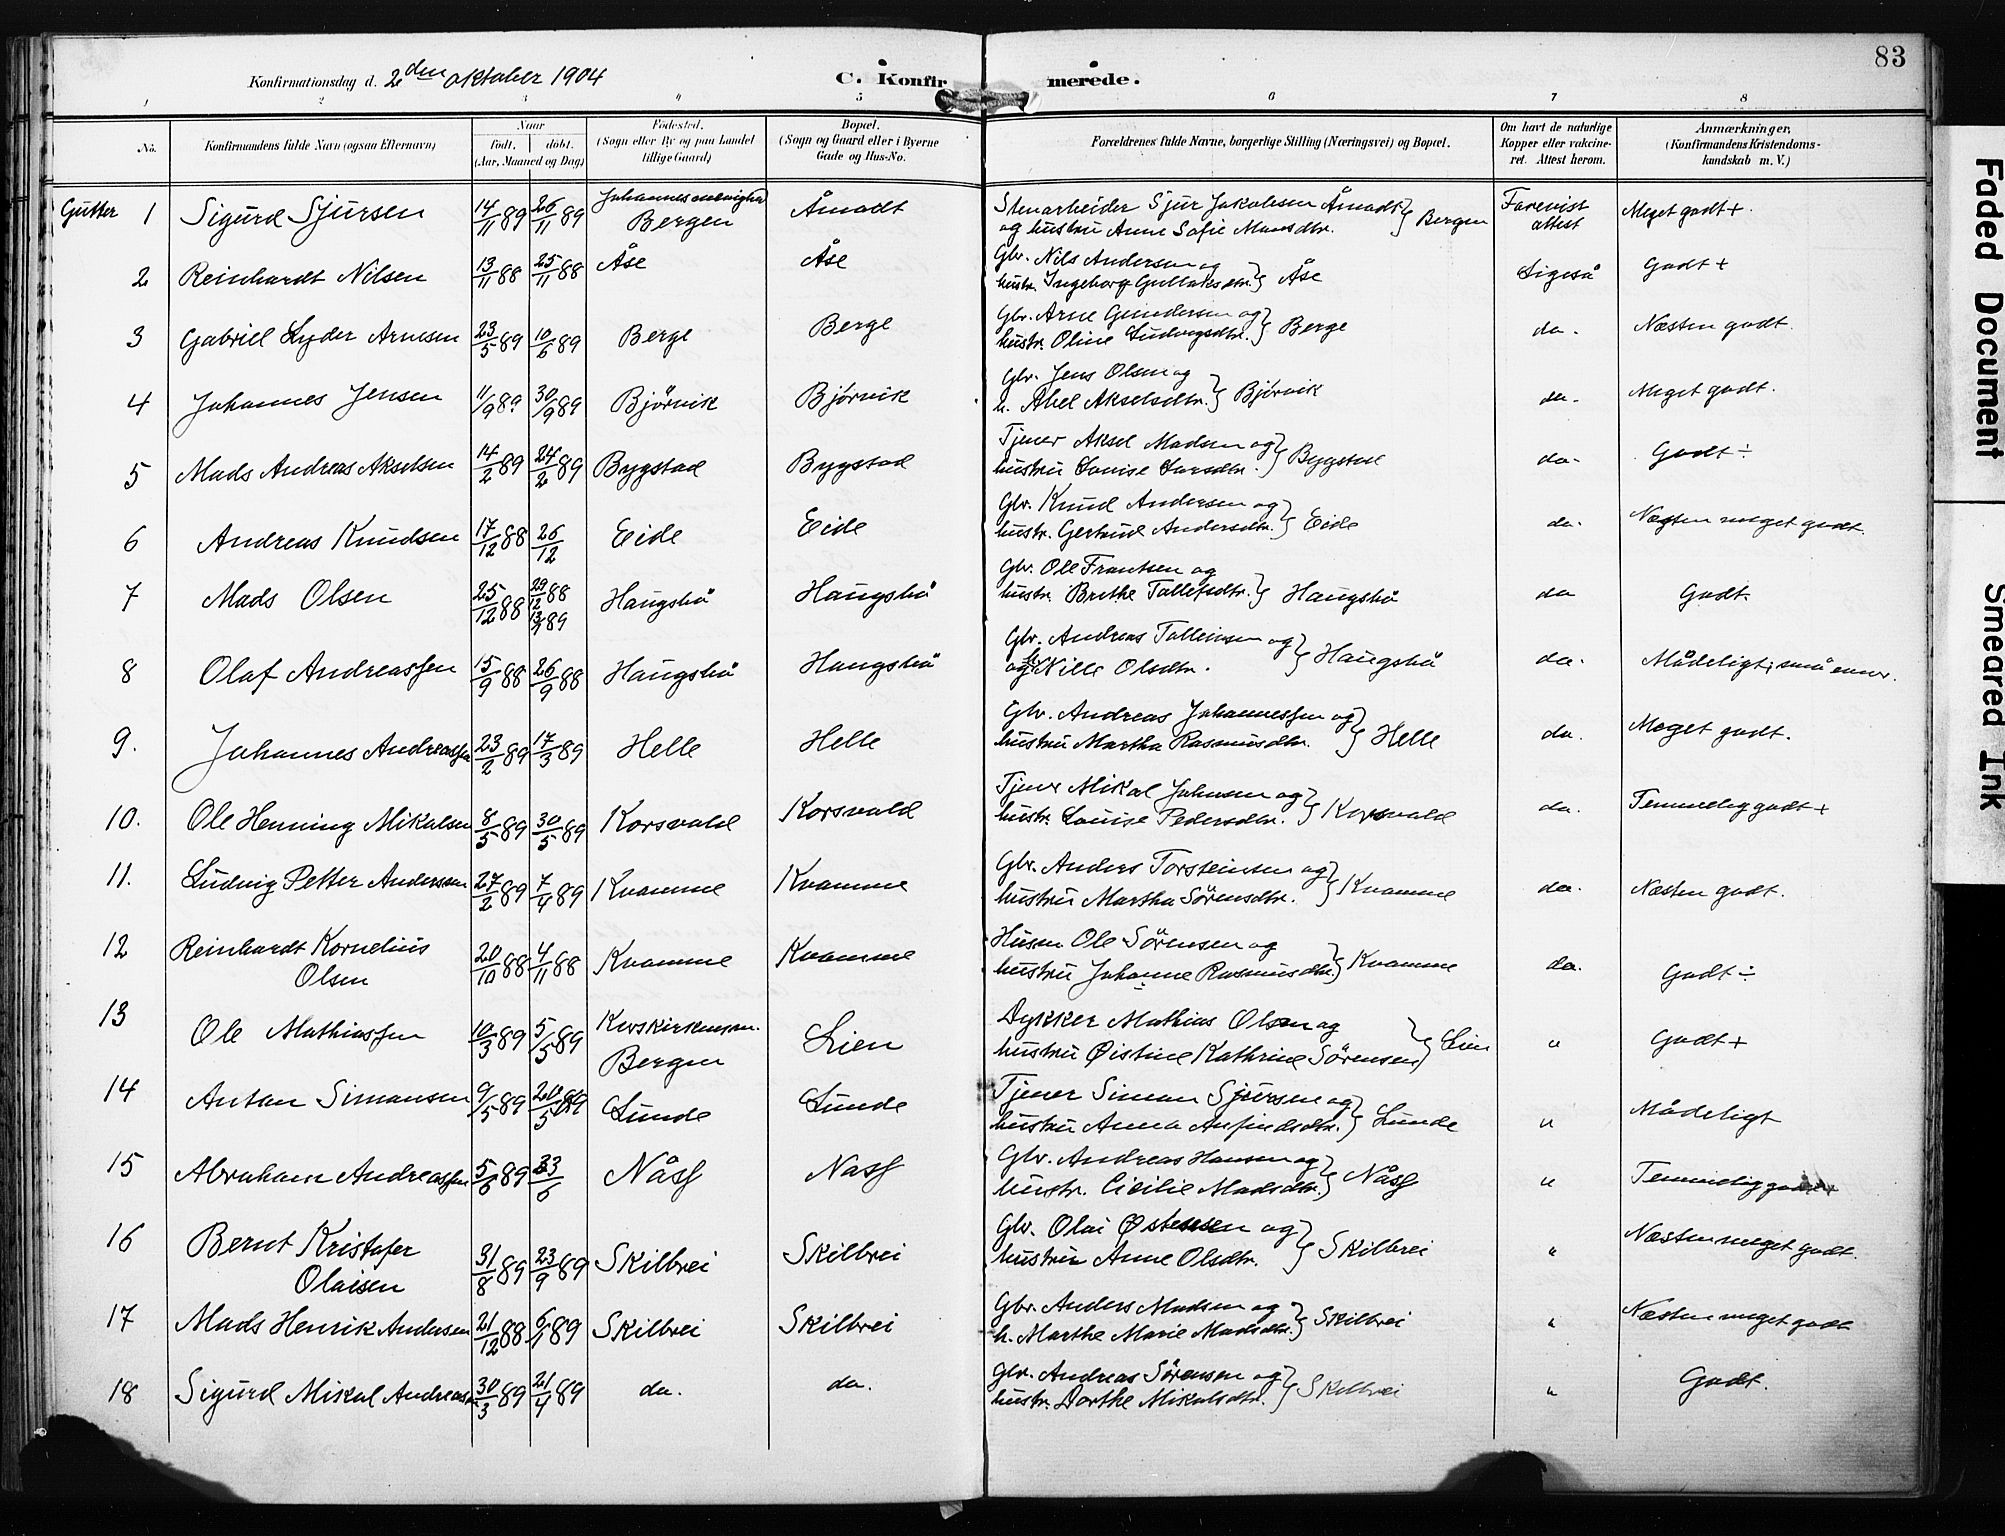 83
Konfirmationsdag d. 2den oktober 1904
C. Konfirmerede.
1 2 3 4 5 6 7 8
No. Konfirmandens fulde Navn (ogsaa Efternavn) Naar født, døbt. (Aar, Maaned og Dag) Fødested. (Sogn eller By og paa Landet tillige Gaard) Bopæl. (Sogn og Gaard eller i Byerne Gade og Hus-No. Forældrenes fulde Navne, borgerlige Stilling (Næringsvei) og Bopæl. Om havt de naturlige Kopper eller vakcineret. Attest herom. Anmærkninger, (Konfirmandens Kristendomskundskab m. V.)
Gutter 1 Sigurd Sjursen 14/11 89 26/11 89 Bergen Åmodt Stenarbeider Sjur Jakobsen Åmodt Bergen Forevist Meget godt +
og hustru Anne Sofie Monsdtr. attest
2 Reinhardt Nilsen 13/11 88 25/11 88 Åse Åse Gbr. Nils Andersen og Åse Ligeså Godt +
hustr. Ingeborg Gullaksdtr.
3 Gabriel Lyder Arnesen 23/5 89 10/6 89 Berge Berge Gbr. Arne Gundersen og Berge do. Næsten godt.
hustr. Oline Ludvigsdtr.
4 Johannes Jensen 11/9 89 30/9 89 Bjørvik Bjørvik Gbr. Jens Olsen og Bjørvik do. Meget godt.
h. Abel Akselsdtr.
5 Mads Andreas Akselsen 14/2 89 24/2 89 Bygstad Bygstad Tjener Aksel Madsen og Bygstad do. Godt ÷
hustru Louise Larsdtr.
6 Andreas Knudsen 17/12 88 26/12 Eide Eide Gbr. Knud Andersen og Eide do. Næsten meget godt.
hustr. Gertrud Andersdtr.
7 Mads Olsen 25/12 88 29/12 88 Haugsbö Haugsbö Gbr. Ole Frantsen og Haugsbö do Godt.
89 hustr. Brithe Tollefsdtr.
8 Olaf Andreassen 15/9 88 26/9 88 Haugsbö Haugsbö Gbr. Andreas Tolleivsen og Haugsbö do. Mådeligt; små evner.
og Nille Olsdtr.
9. Johannes Andreassen 23/2 89 17/3 89 Helle Helle Gbr. Andreas Johannessen og Helle do. Meget godt.
hustru Martha Rasmusdtr.
10. Ole Henning Mikalsen 8/5 89 30/5 89 Korsvold Korsvold Tjener Mikal Johnsen og Korsvold do. Temmelig godt +
hustr. Louise Pedersdtr.
11. Ludvig Petter Andersen 27/2 89 7/4 89 Kvamme Kvamme Gbr. Anders Torsteinsen og Kvamme do. Næsten godt.
hustru Martha Sörensdtr.
12 Reinhardt Kornelius Olsen 20/10 88 4/11 88 Kvamme Kvamme Husm Ole Sörensen og Kvamme do. Godt ÷
hustru Johanne Rasmusdtr.
13 Ole Mathiassen 10/3 89 5/5 89 Korskirken Bergen Lien Dykker Mathias Olsen og Lien " Godt +
hustru Øistine Kathrine Sörensen
14 Anton Simonsen 9/5 89 20/5 89 Lunde Lunde Tjener Simon Sjursen og Lunde " Mådeligt
hustru Anna Anfindsdtr.
15 Abraham Andreassen 5/6 89 23/6 Nåss Nass Gbr. Andreas Hansen og Nåss " Temmelig godt
hustr. Cicilie Madsdtr.
16 Bernt Kristofer Olaisen 31/8 89 23/9 89 Skilbrei Skilbrei Gbr. Olai Østensen og Skilbrei " Næsten meget godt.
hustru Anne Olsdtr.
17 Mads Henrik Andersen 21/12 88 6/1 89 Skilbrei Skilbrei Gbr. Anders Madsen og Skilbrei " Næsten meget godt
h. Marthe Marie Madsdtr.
18 Sigurd Mikal Andreassen 30/3 89 21/4 89 do. do. Gbr. Andreas Sörensen og Skilbrei " Godt.
hustr. Dorthe Mikalsdtr.
Faded Document
Smeared Ink